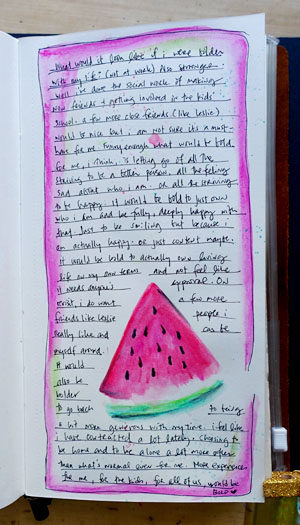 What would it look like if i were bolder
with my life? (not at work) Also stronger.
Well i've done the social work of making
new friends & getting involved in the kids'
school. a few more close friends (like Leslie)
would be nice but i am not sure its a must-
have for me. Funny enough what would be bold
for me, i think, is letting go of all the
striving to be a better person. all the feeling
sad about who i am. or all the striving
to be happy. it would be bold to just own
who i am and be fully, deeply happy with
that. Not to be smiling but because i
am actually happy. or just content maybe.
It would be bold to actually own living
life on my own terms and not feel like
it needs anyone's approval. or
exist. i do want a few more
friends like Leslie people i
really like and can be
myself around.
It would
also be
bolder
to go back to being
a bit more generous with my time. i feel like
i have contracted a lot lately. Choosing to
be home and to be alone a lot more often
than what's normal even for me. More experiences
for me, for the kids, for all of us, would be
BOLD